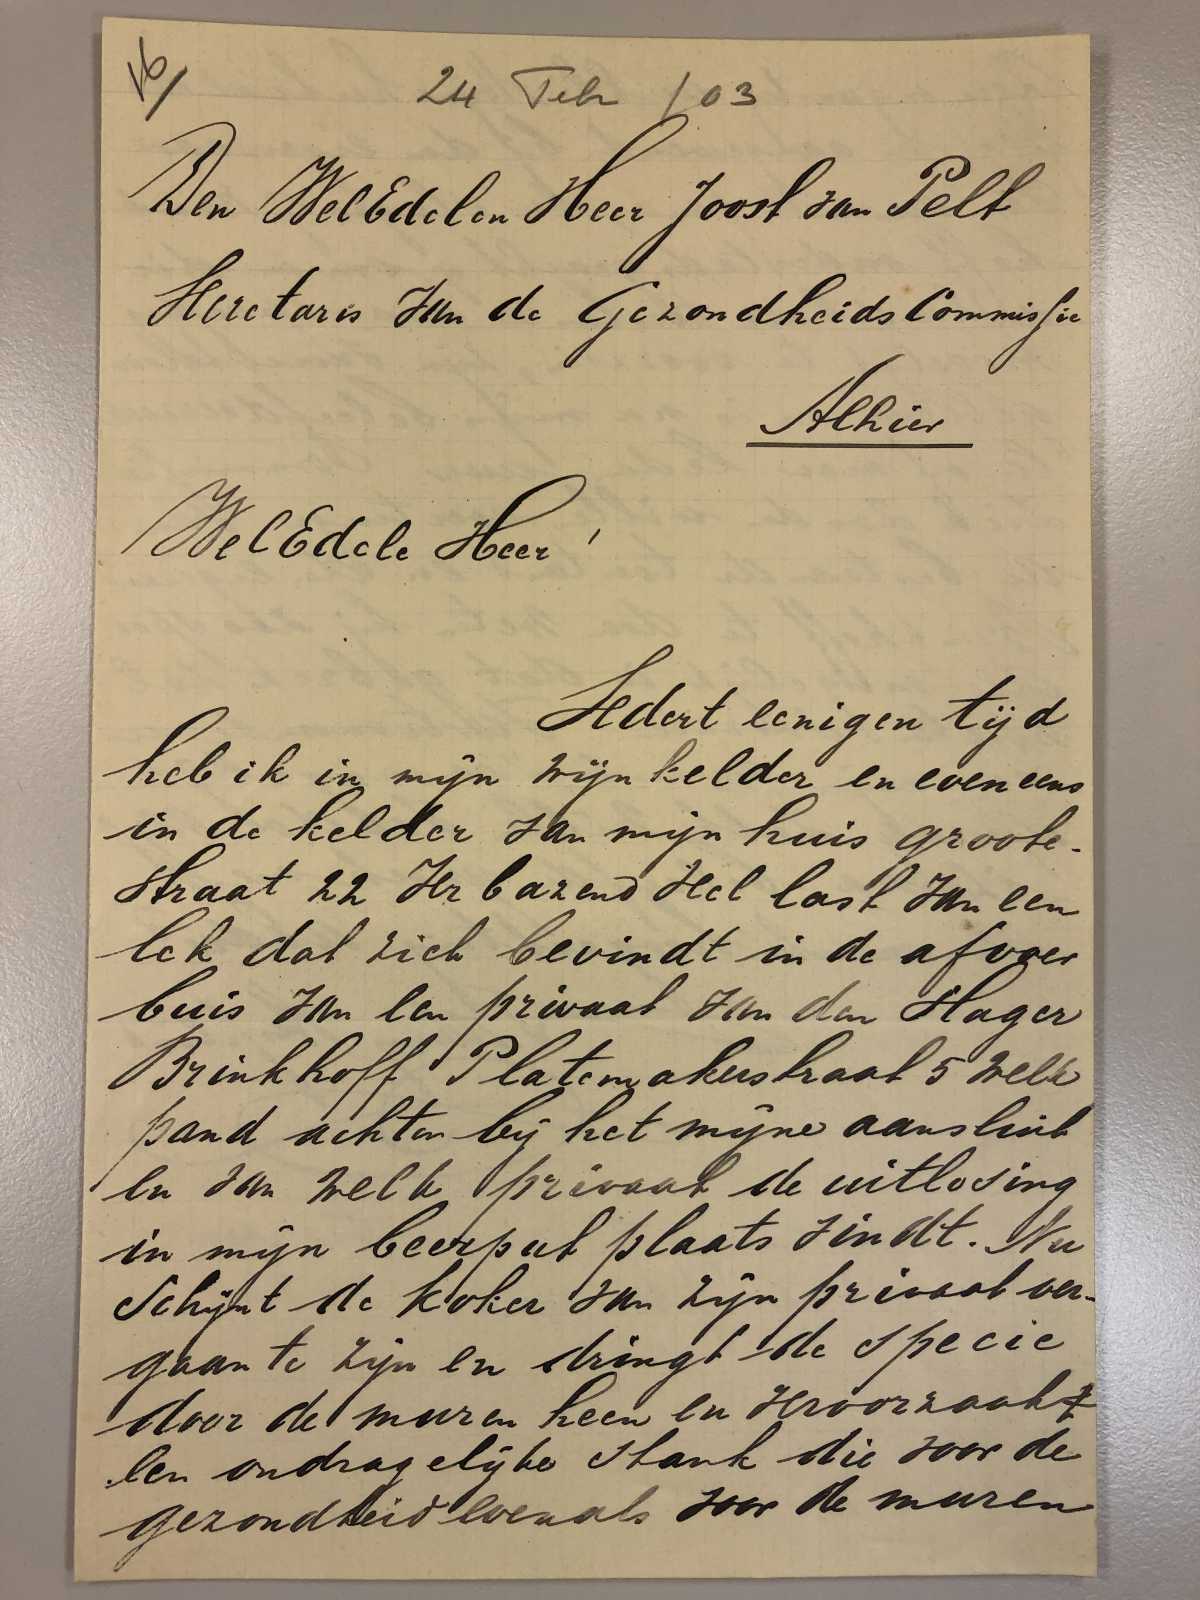 16/
24 Febr /03
Den WelEdelen Heer Joost van Pelt
Secretaris van de GezondheidsCommissie
Alhier
WelEdele Heer'
Sedert eenigen tijd
heb ik in mijn wijnkelder en eveneens
in de kelder van mijn huis groote-
straat 22 verbazend veel last van een
lek dat zich bevindt in de afvoer
buis van een privaat van den Slager
Brinkhoff Platemakerstraat 5 welk
pand achter bij het mijne aansluit
en van welk privaat de uitlosing
in mijn beerput plaats vindt. Nu
schijnt de koker van zijn privaat ver-
gaan te zijn en dringt de specie
door de muren heen en veroorzaakt
een ondragelijke stank die voor de
gezondheid evenals voor de muren